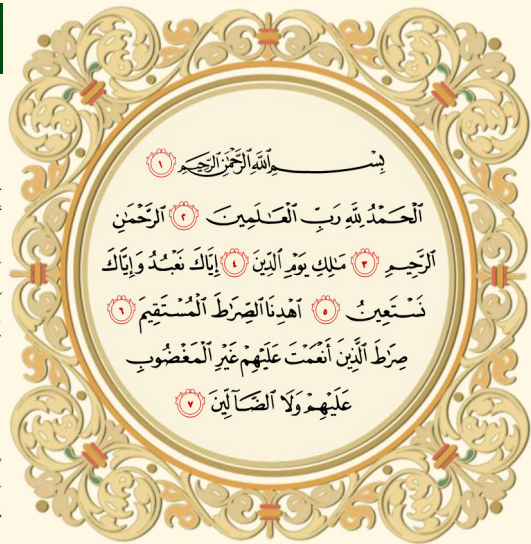 بِسْمِ ٱللَّهِ ٱلرَّحْمَٰنِ ٱلرَّحِيمِ ١
ٱلْحَمْدُ لِلَّهِ رَبِّ ٱلْعَـٰلَمِينَ ٢ ٱلرَّحْمَٰنِ
ٱلرَّحِيمِ ٣ مَـٰلِكِ يَوْمِ ٱلدِّينِ ٤ إِيَّاكَ نَعْبُدُ وَإِيَّاكَ
نَسْتَعِينُ ٥ ٱهْدِنَا ٱلصِّرَٰطَ ٱلْمُسْتَقِيمَ ٦
صِرَٰطَ ٱلَّذِينَ أَنْعَمْتَ عَلَيْهِمْ غَيْرِ ٱلْمَغْضُوبِ
عَلَيْهِمْ وَلَا ٱلضَّآلِّينَ ٧